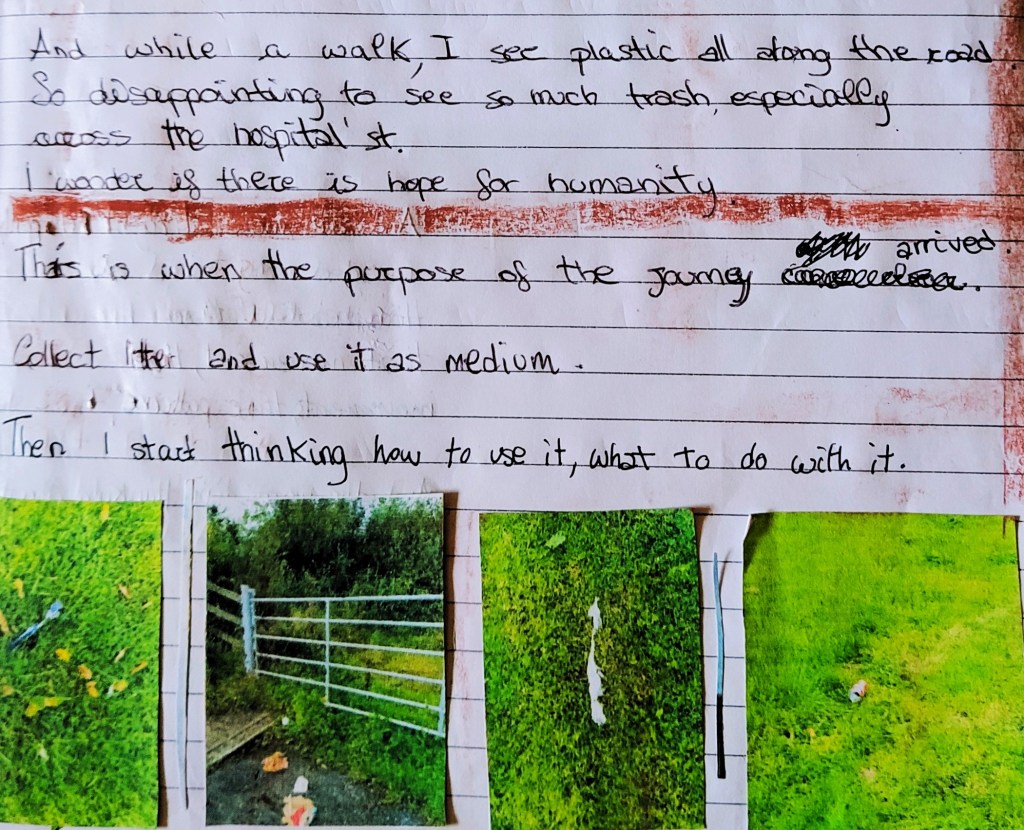 And while a walk, I see plastic all along the road.
So disappointing to see so much trash, especially
across the hospital st.
I wonder if there is hope for humanity.
arrived.
This is when the purpose of the journey
Collect litter and use it as medium.
Then I start thinking how to use it, what to do with it.